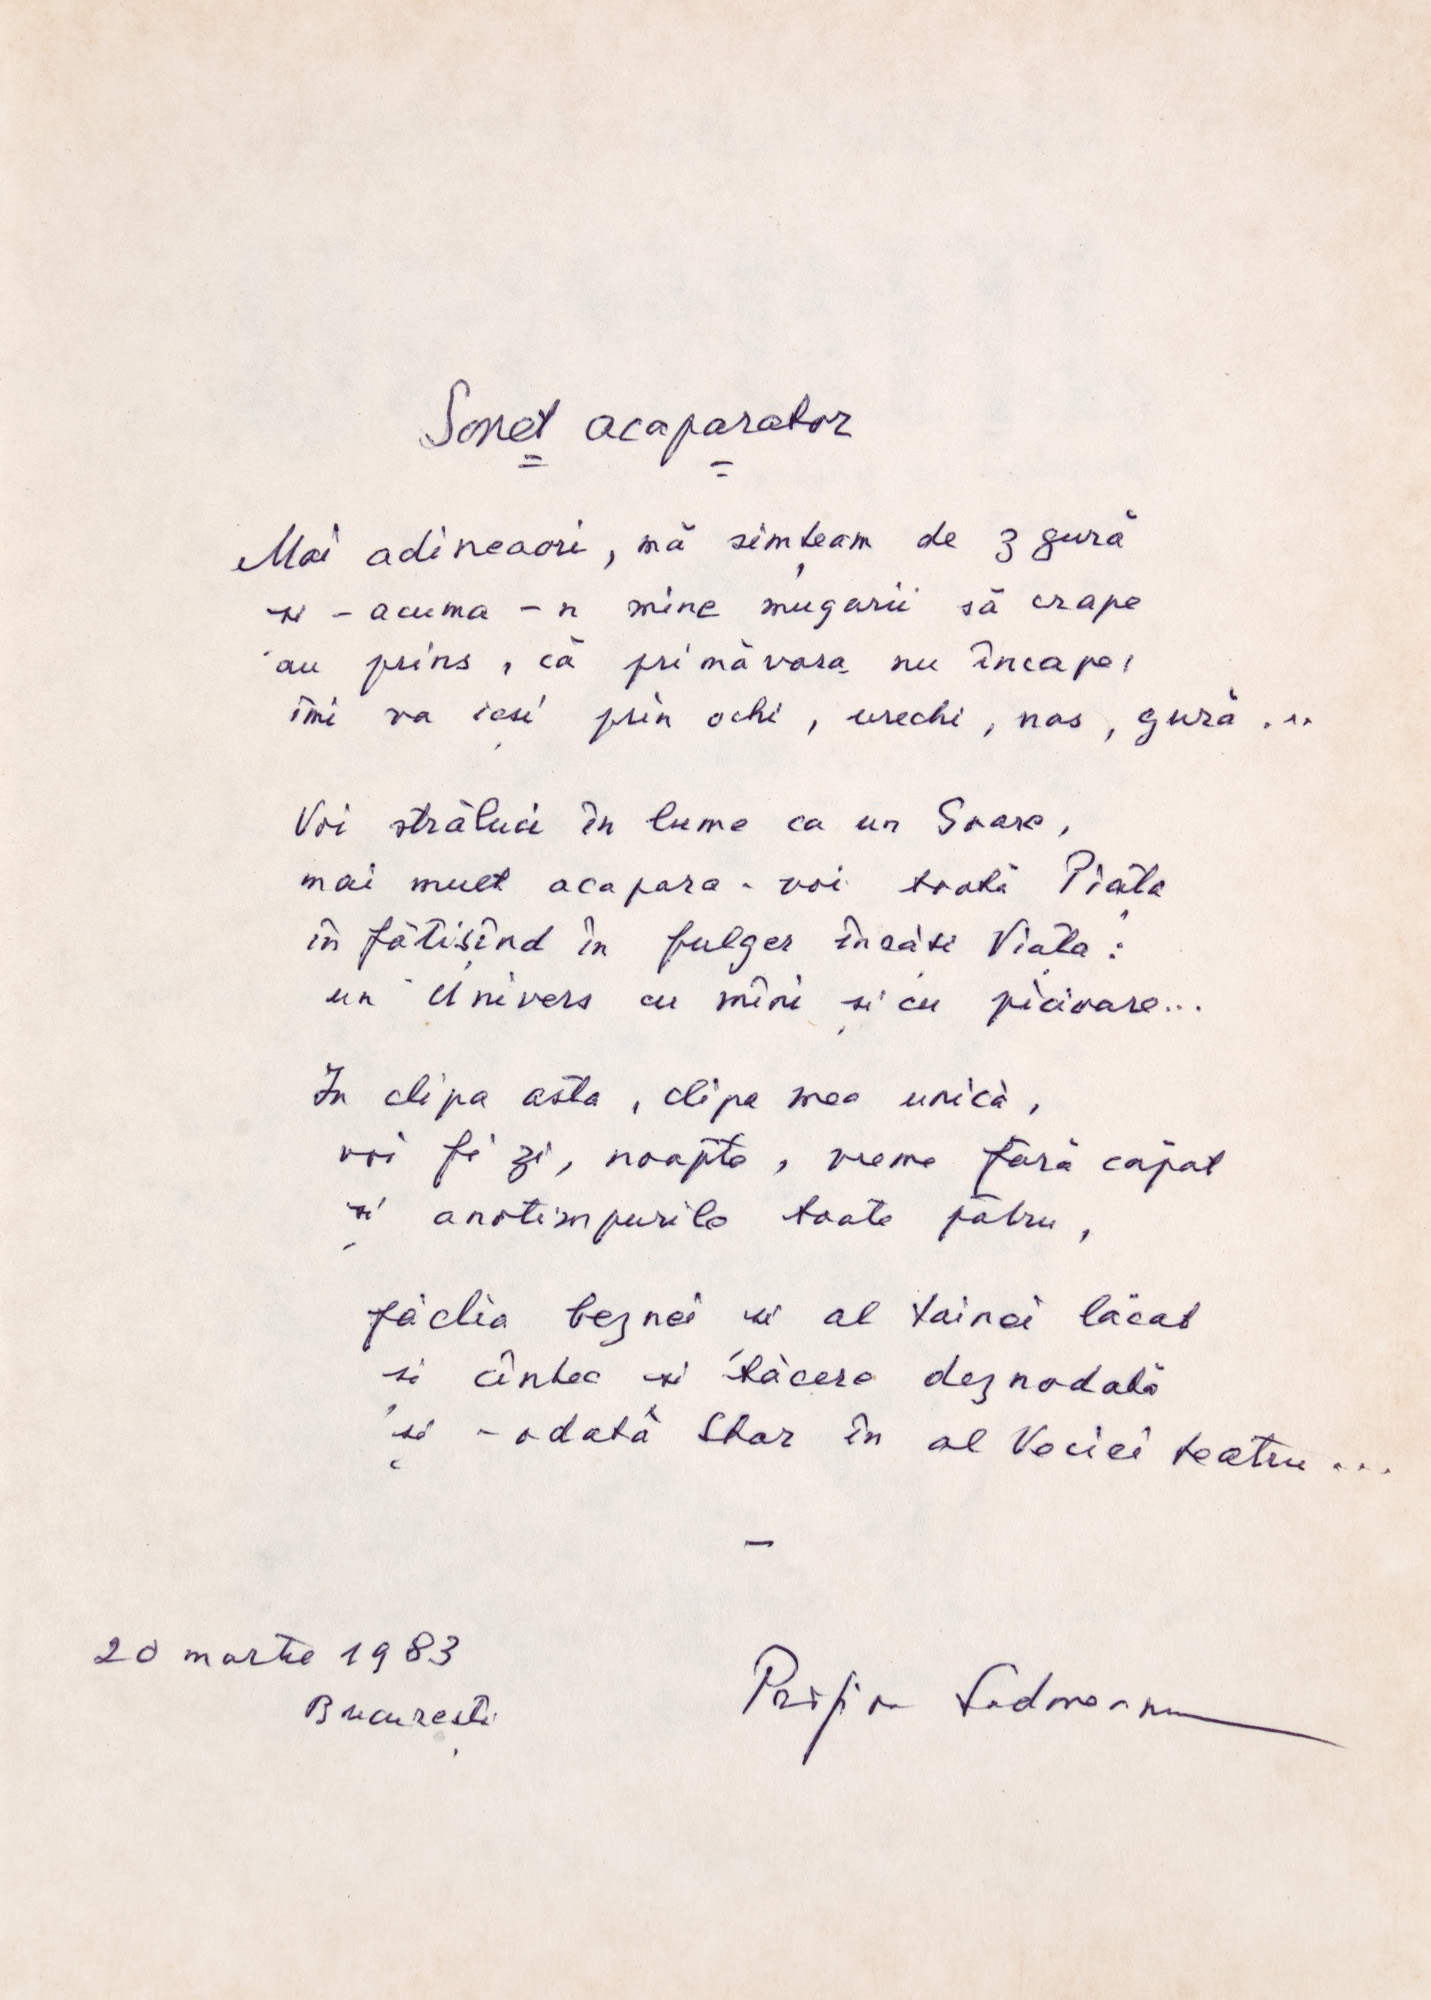 Sonet acaparator
Mai adineaori, mă simțeam de zgură
și-acuma-n mine mugurii să crape
au prins, că primăvara nu încape,
îmi va ieși prin ochi, urechi, nas, gură...
Voi străluci în lume ca un Soare,
mai mult acapara-voi toată Piața
înfățișînd în fulger însăși Viața:
un Univers cu mîni și cu picioare...
In clipa asta, clipa mea unică,
voi fi zi, noapte, vreme fără căpăt
și anotimpurile toate patru,
făclia beznei și al tainei lăcat
și cîntec și tăcere deznodată
și-odată Star în al Veciei teatru...
—
20 martie 1983
București